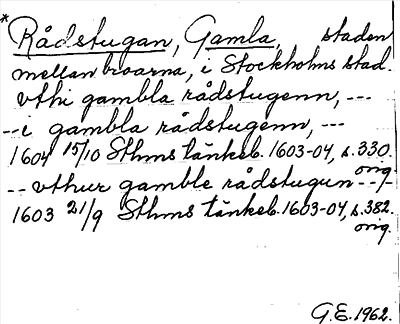 * Rådstugan, Gamla, staden
mellan broarna, i Stockholms stad.
vthi gambla rådstugenn, ---
--i gambla rådstugenn, ---
1604 15/10 Sthms tänkeb. 1603-04, s. 330.
orig.
-- vthur gamble rådstugun --/-
1603 21/9 Sthms tänkeb. 1603-04, s. 382.
orig.
G.E. 1962.